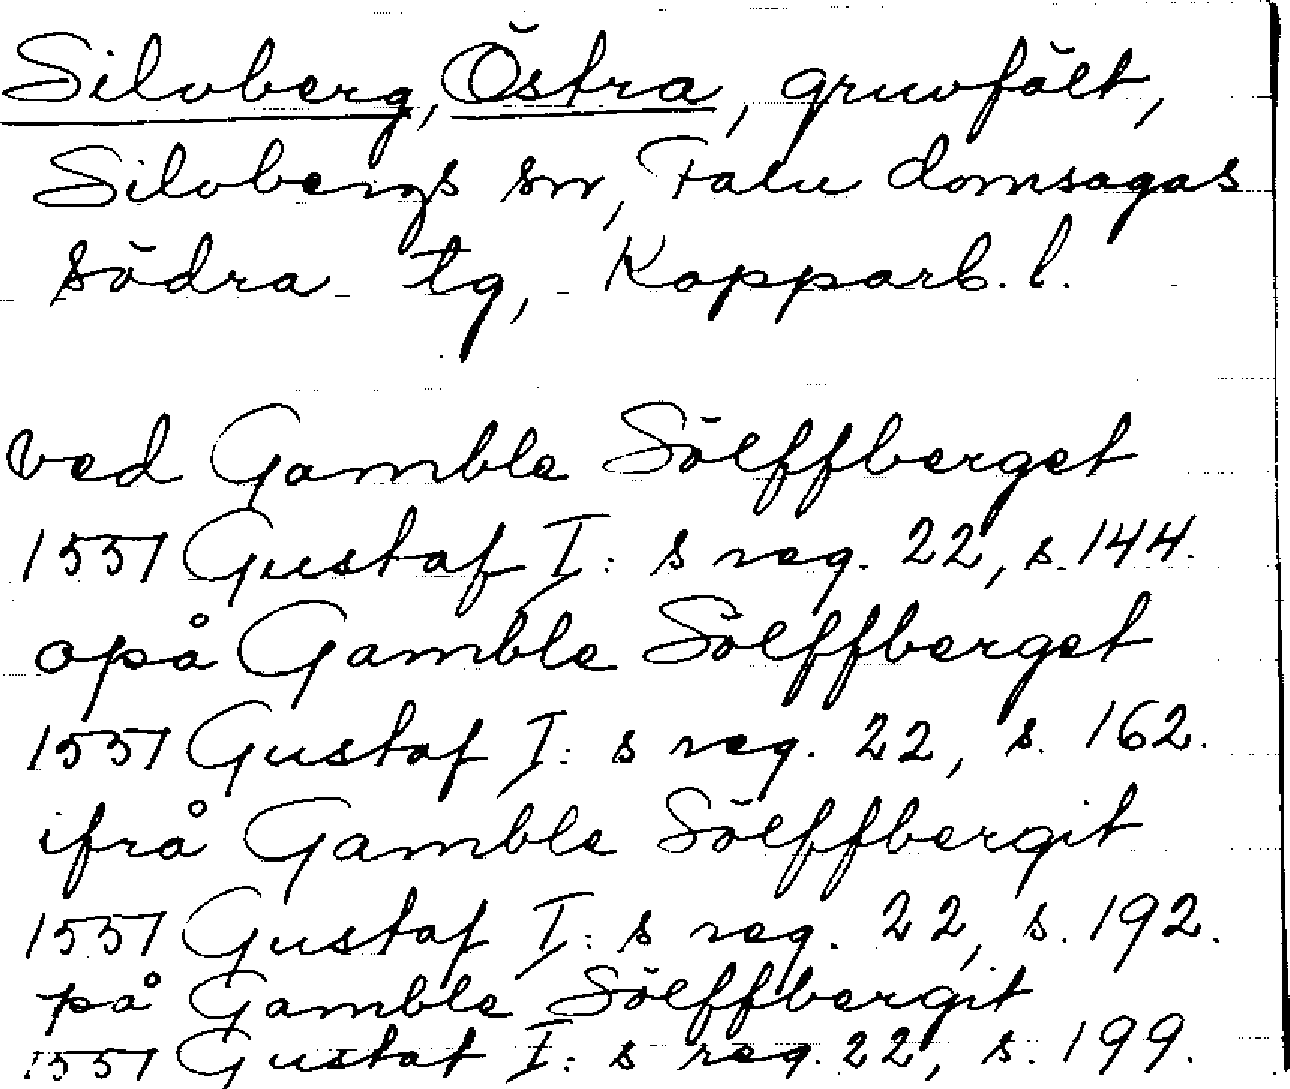 Silvberg, Östra, gruvfält,
Silvbergs sn, Falu domsagas
södra tg, Kopparb. l.
ved Gamble Sölffberget
1551 Gustaf I: s reg. 22, s. 144.
opå Gamble Sölffberget
1551 Gustaf I: s reg. 22, s. 162.
ifrå Gamble Sölffbergit
1551 Gustaf I: s reg. 22, s. 192.
på Gamble Sölffbergit
1551 Gustaf I: s reg. 22, s. 199.